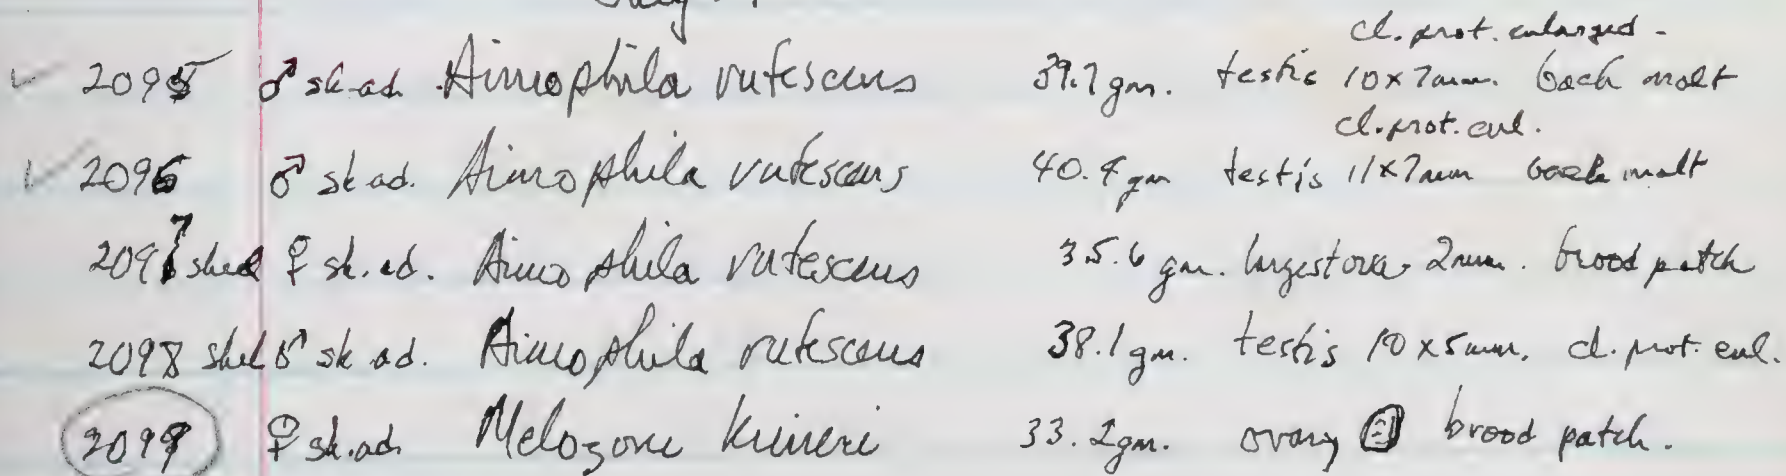 cl. prot. enlarged -
✓ 2095 ♂ sk-ad. Aimophila rufescens 39.7 gm. testis 10 x 7mm. back molt
cl. prot. enl.
✓ 2096 ♂ sk ad. Aimophila rufescens 40.4 gm testis 11 x 7mm back molt
2097 skel ♀ sk. ad. Aimophila rufescens 35.6 gm. largest ova 2mm. brood patch
2098 skel ♂ sk ad. Aimophila rufescens 38.1 gm. testis 10 x 5mm. cl. prot. enl.
2099 ♀ sk. ad. Melozone kieneri 33.2 gm. ovary brood patch.